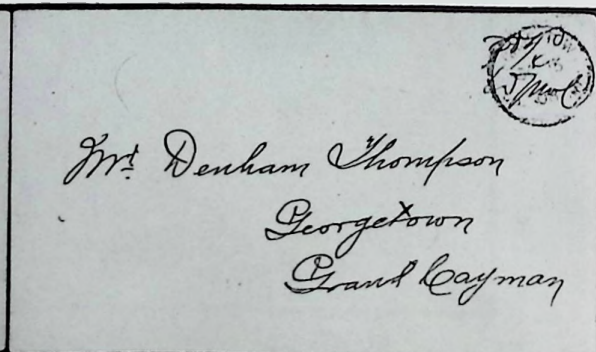 Mr. Denham Thompson
Georgetown
Grand Cayman